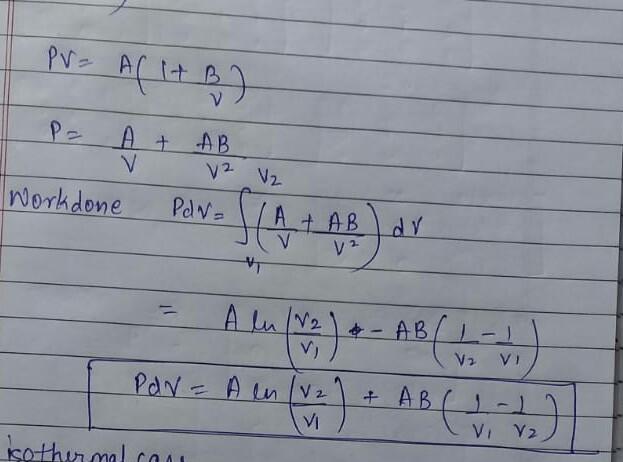 PV = A(1 + B/V)
P = A/V + AB/V²
Workdone PdV = ∫_{V1}^{V2} (A/V + AB/V²) dV
= A ln(V2/V1) - AB(1/V2 - 1/V1)
PdV = A ln(V2/V1) + AB(1/V1 - 1/V2)
isothermal case